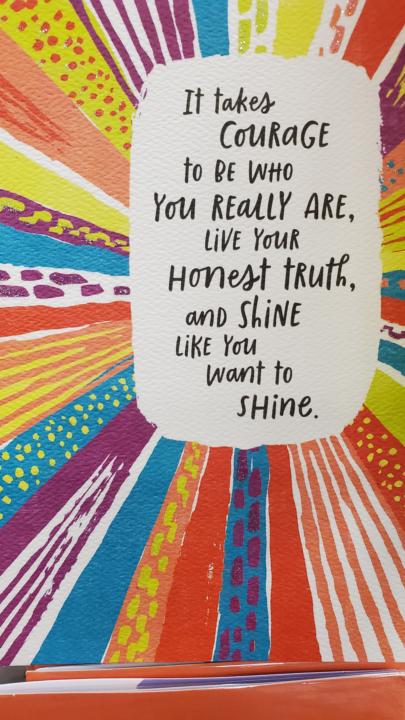 It takes
COURAGE
to BE WHO
YOU REALLY ARE,
LIVE YOUR
Honest tRUth,
and SHINE
LIKE You
want to
SHINE.